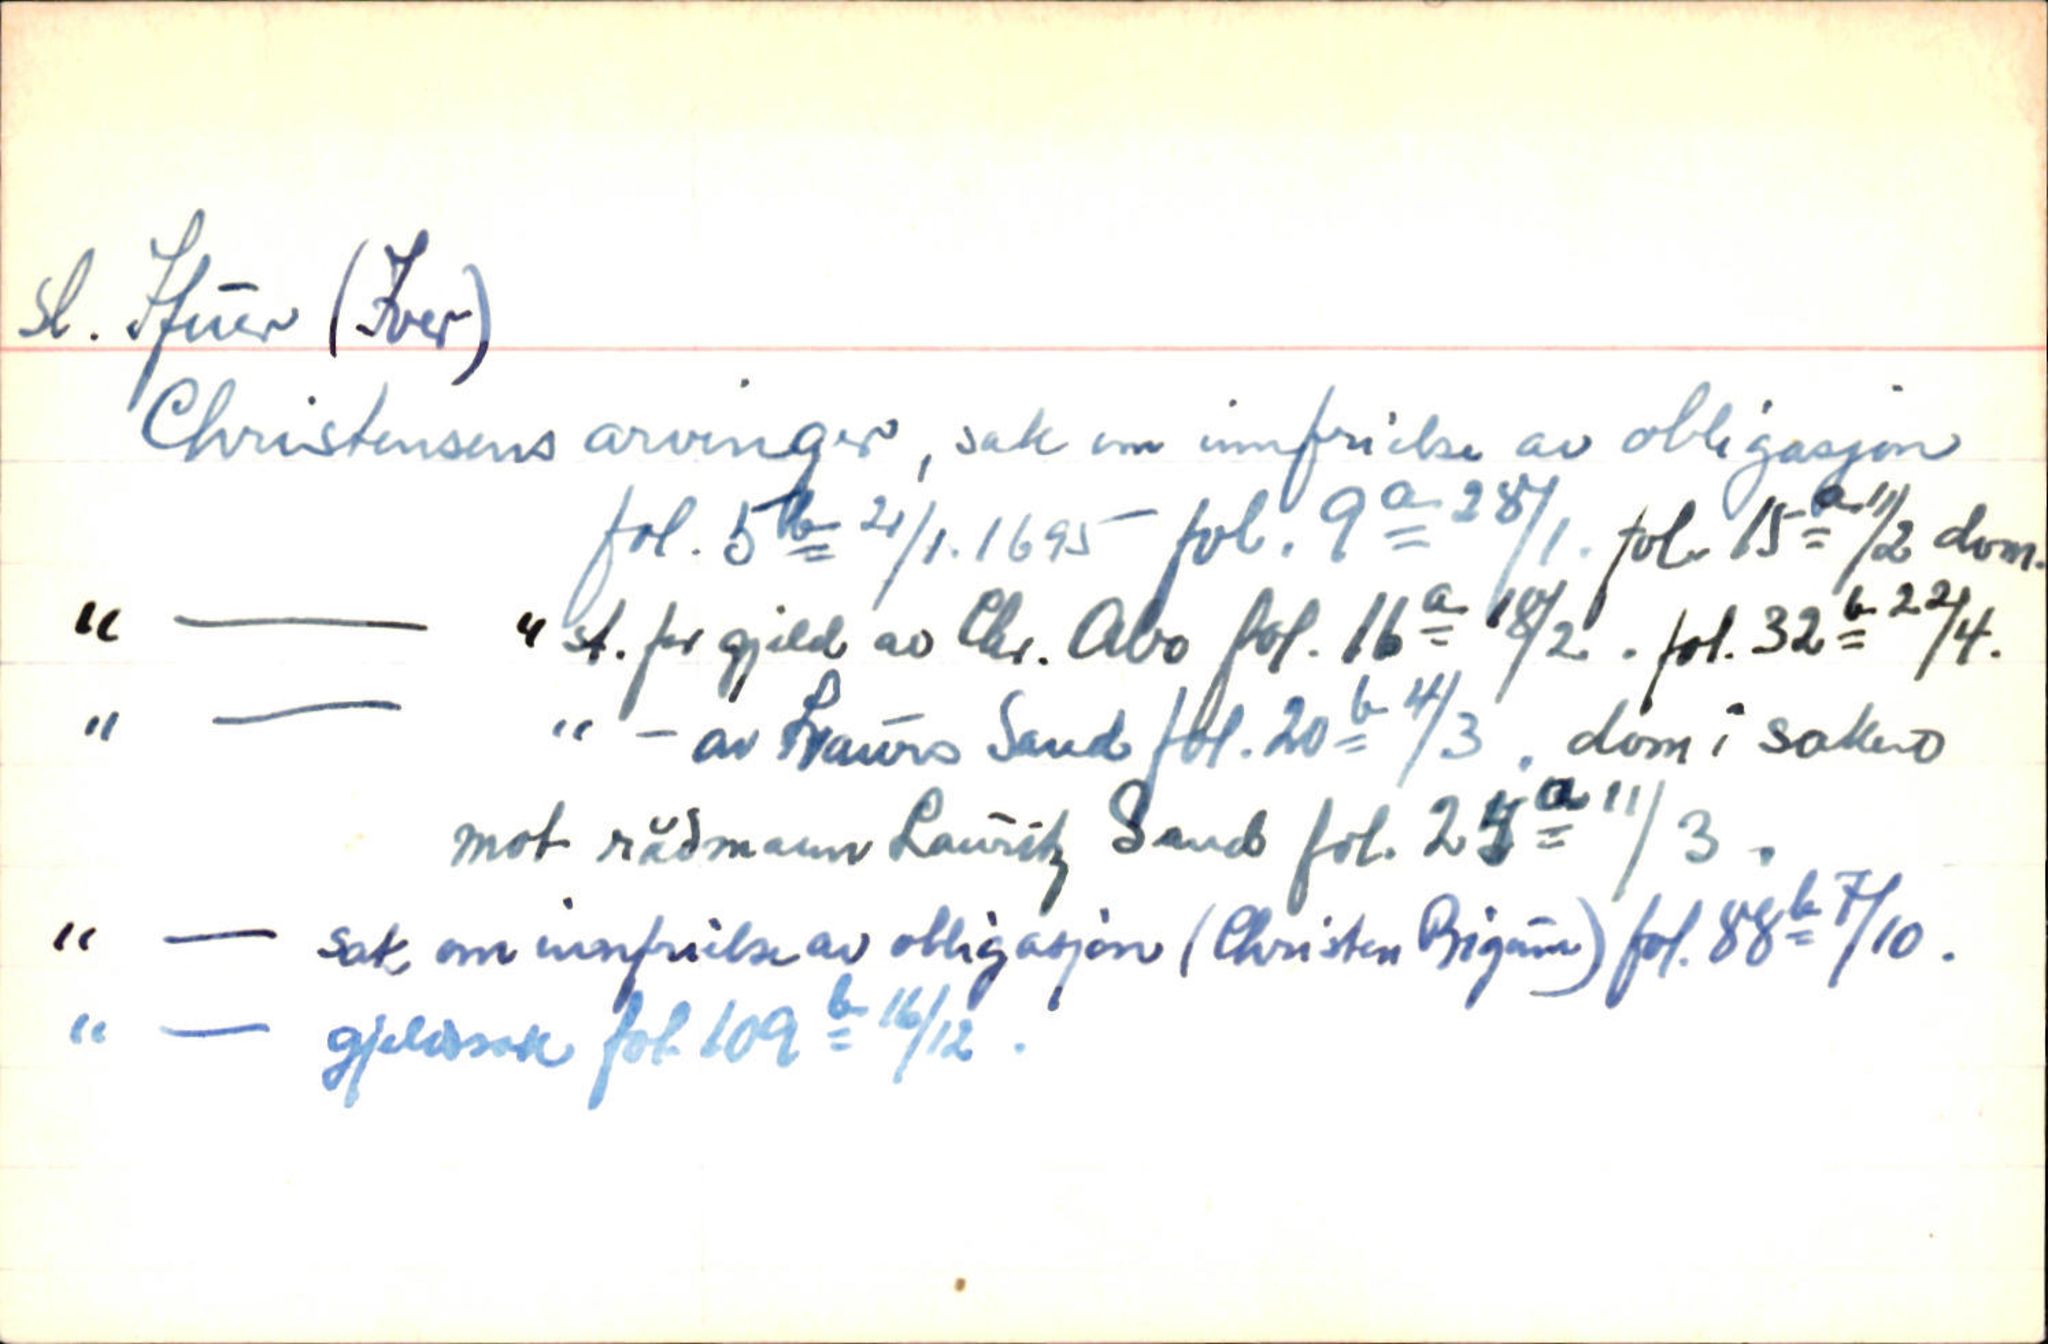 sl. Ifuer (Iver)
Christensens arvinger, sak om innfrielse av obligasjon
fol. 5 b 21/1. 1695 – fol. 9 a 28/1. fol. 15 a 11/2 dom.
" — " st. for gjeld av Chr. Abo fol. 16 a 18/2. fol. 32 b 22/4.
" — " – av Laurs Sand fol. 20 b 4/3. dom i saken
mot rådmann Lauritz Sand fol. 24 a 11/3.
" — sak om innfrielse av obligasjon (Christen Bigum) fol. 88 b 7/10.
" — gjeldssak fol. 109 b 16/12.